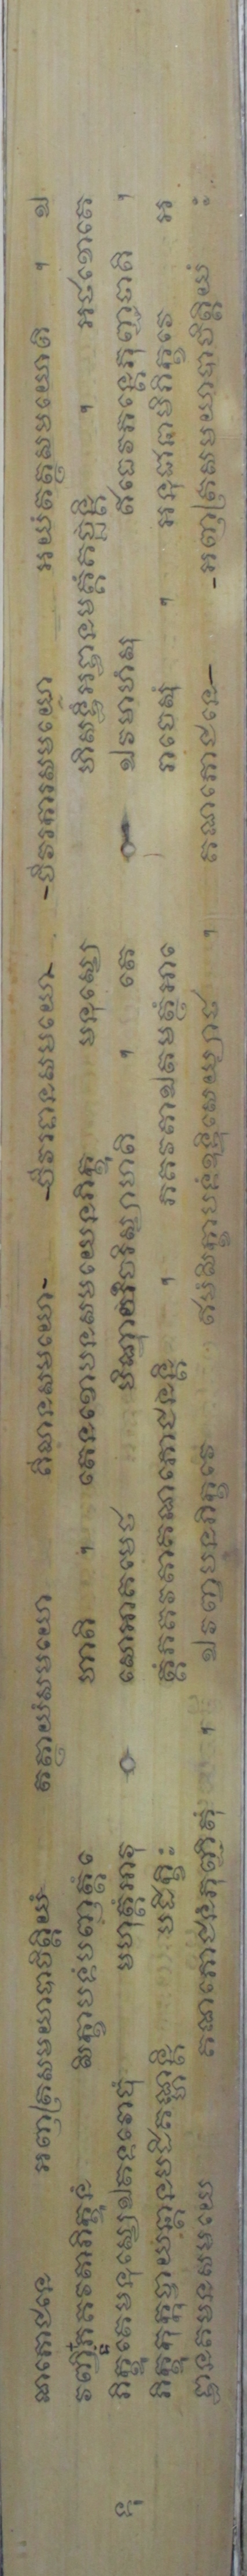 ណភោជនេ អញ្ញត្រសមយាបាចិត្តិយំ តត្ថាយំសមយោ គិលានសមយោ- -ចីវរទានសមយោ- -ចីវរការសមយោ អយំតត្ថសមយោតិ ។ ឯ
វញ្ចិទំភគវតាភិក្ខូនំ សិក្ខាបទំបញ្ញត្តំ ហោតិ ។ តេនខោបនសមយេនភិក្ខូ មនុស្សេ ហិសទ្ធឹអទ្ធានមគ្គំគច្ឆន្តិ ។ អថខោតេ
ភិក្ខូតេមនុស្សេឯតទវោចុំ មហុត្តំអាវុ សោអាគមេថ បិណ្ឌាយចរិស្សាមាតិ ។ តេ ឯវមាហំសុ ឥធេវភន្តេភុញ្ជថាតិ ។
ភិក្ខូកុក្កុច្ចាយន្តានបដិគ្គណ្ហន្តិ បដិក្ខិ ត្តំភគវតាគណភោជនន្តិ ។ ភគវតោឯតមត្ថំអា រោចេសុំ ។ អនុជានាមិភិក្ខវេ អ
ទ្ធានគមនសមយេ គណភោជនំភុញ្ជិតុំ ។ ឯវញ្ចបនភិក្ខវេ ឥមំសិក្ខាបទំឧទ្ទិសេយ្យាថ ។ គណភោជនេ- -អញ្ញត្រសមយាបាចិត្តិយំ ៖